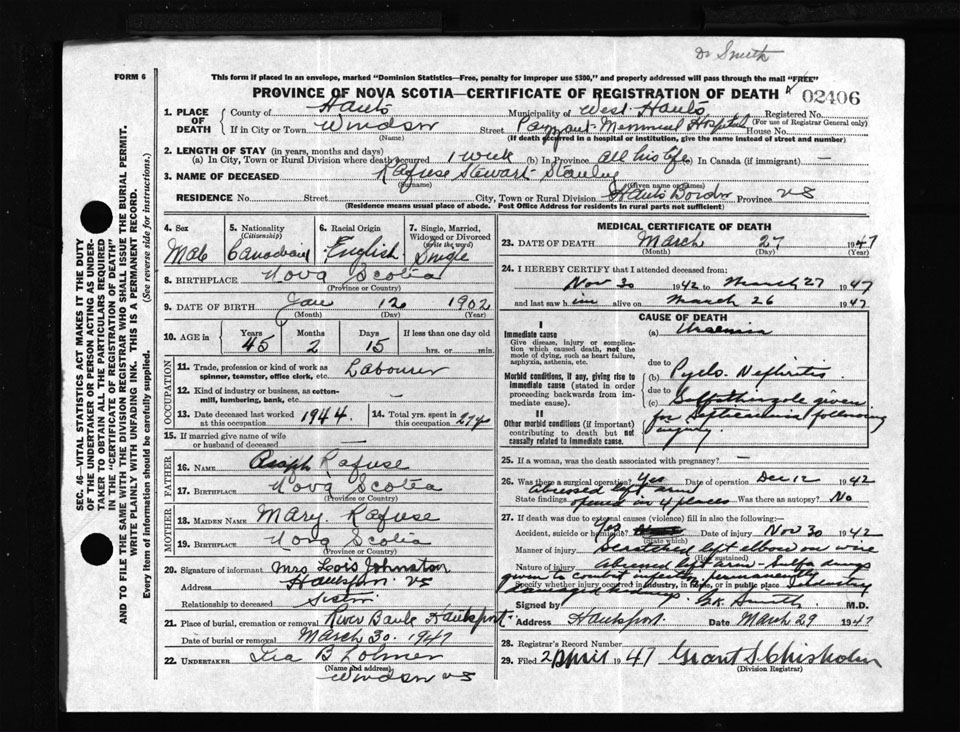 Dr Smith
FORM 6
This form if placed in an envelope, marked "Dominion Statistics—Free, penalty for improper use $300," and properly addressed will pass through the mail "FREE"
PROVINCE OF NOVA SCOTIA—CERTIFICATE OF REGISTRATION OF DEATH
02406
1. PLACE OF DEATH
County of Hants
Municipality of West Hants
Registered No.
(For use of Registrar General only)
If in City or Town Windsor
(Name)
Street Payzant Memorial Hospital House No.
(If death occurred in a hospital or institution, give name instead of street and number)
2. LENGTH OF STAY (in years, months and days)
(a) In City, Town or Rural Division where death occurred 1 week (b) In Province all his life (c) In Canada (if immigrant) —
3. NAME OF DECEASED Rafuse Stewart Stanley
(Surname) (Given name or names)
RESIDENCE No. Street City, Town or Rural Division Hants Border Province NS
(Residence means usual place of abode. Post Office Address for residents in rural parts not sufficient)
4. Sex Male
5. Nationality (Citizenship) Canadian
6. Racial Origin English
7. Single, Married, Widowed or Divorced (Write the word) Single
8. BIRTHPLACE Nova Scotia
(Province or Country)
9. DATE OF BIRTH Jan 12 1902
(Month) (Day) (Year)
10. AGE in Years 45 Months 2 Days 15 If less than one day old hrs. or min.
OCCUPATION
11. Trade, profession or kind of work as spinner, teamster, office clerk, etc. Labourer
12. Kind of industry or business, as cotton-mill, lumbering, bank, etc. —
13. Date deceased last worked at this occupation 1944
14. Total yrs. spent in this occupation 27 y
15. If married give name of wife or husband of deceased —
FATHER
16. NAME Asaph Rafuse
17. BIRTHPLACE Nova Scotia
(Province or Country)
MOTHER
18. MAIDEN NAME Mary Rafuse
19. BIRTHPLACE Nova Scotia
(Province or Country)
20. Signature of informant Mrs Lois Johnston
Address Hantsport NS
Relationship to deceased Sister
21. Place of burial, cremation or removal River Bank Hantsport
Date of burial or removal March 30 1947
22. UNDERTAKER Ira B
(Name and address)
Windsor NS
MEDICAL CERTIFICATE OF DEATH
23. DATE OF DEATH March 27 1947
(Month) (Day) (Year)
24. I HEREBY CERTIFY that I attended deceased from:
Nov 30 1942 to March 27 1947
and last saw him alive on March 26 1947
CAUSE OF DEATH
I
Immediate cause
Give disease, injury or complication which caused death, not the mode of dying, such as heart failure, asphyxia, asthenia, etc.
(a) Uraemia
due to
Morbid conditions, if any, giving rise to immediate cause (stated in order proceeding backwards from immediate cause).
(b) Pyelo Nephritis
due to
(c) Sulfathiazole given
for Septicaemia following
injury.
II
Other morbid conditions (if important) contributing to death but not causally related to immediate cause.
25. If a woman, was the death associated with pregnancy? —
26. Was there a surgical operation? Yes Date of operation Dec 12 1942
State findings abscessed left arm opened in 4 places Was there an autopsy? No
27. If death was due to external causes (violence) fill in also the following:—
Accident, suicide or homicide? Yes Date of injury Nov 30 1942
(State which)
Manner of injury Scratched left elbow on wire
(How sustained)
Nature of injury abscessed left arm - Sulfa drugs
given to combat infection permanently
Specify whether injury occurred in industry, in home, or in public place industry
damaged kidneys.
Signed by Smith M.D.
Address Hantsport Date March 29 1947
28. Registrar's Record Number
29. Filed 2 April 1947 Grant S Chisholm
(Division Registrar)
SEC. 46—VITAL STATISTICS ACT MAKES IT THE DUTY
OF THE UNDERTAKER OR PERSON ACTING AS UNDER-
TAKER TO OBTAIN ALL THE PARTICULARS REQUIRED
IN THE "CERTIFICATE OF REGISTRATION OF DEATH"
AND TO FILE THE SAME WITH THE DIVISION REGISTRAR WHO SHALL ISSUE THE BURIAL PERMIT.
WRITE PLAINLY WITH UNFADING INK. THIS IS A PERMANENT RECORD.
Every item of information should be carefully supplied. (See reverse side for instructions.)